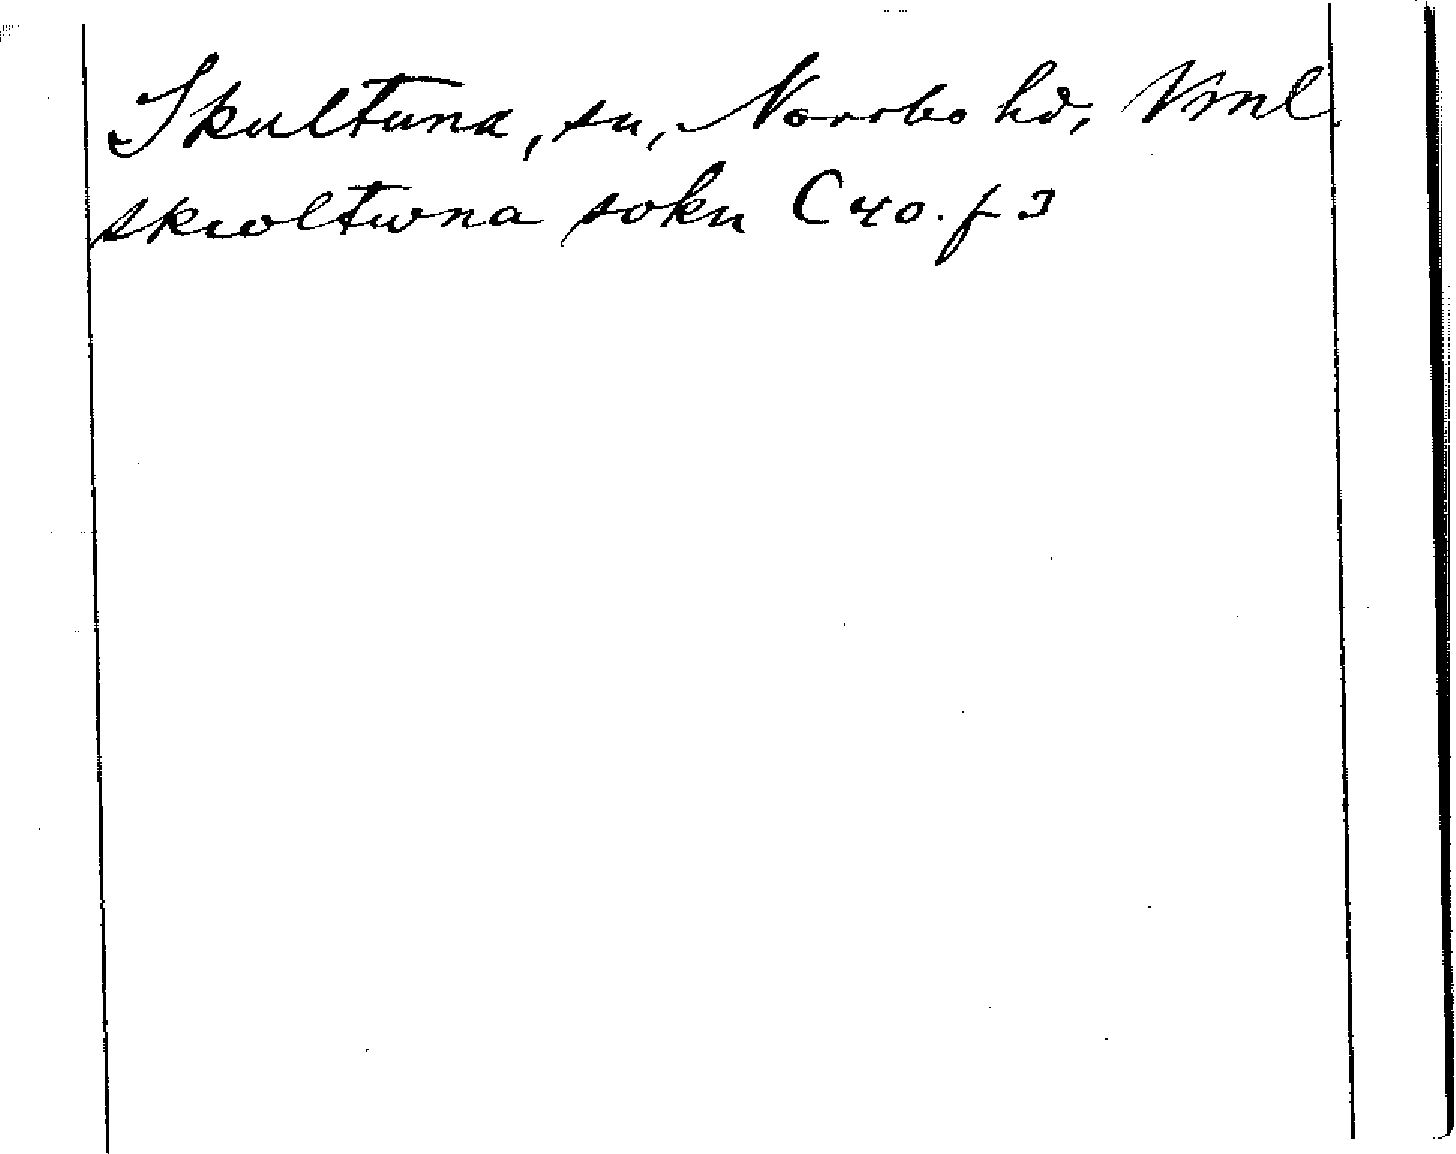 Skultuna, sn, Norrbo hd, Vml.
skwltwna sokn C 40. f 3